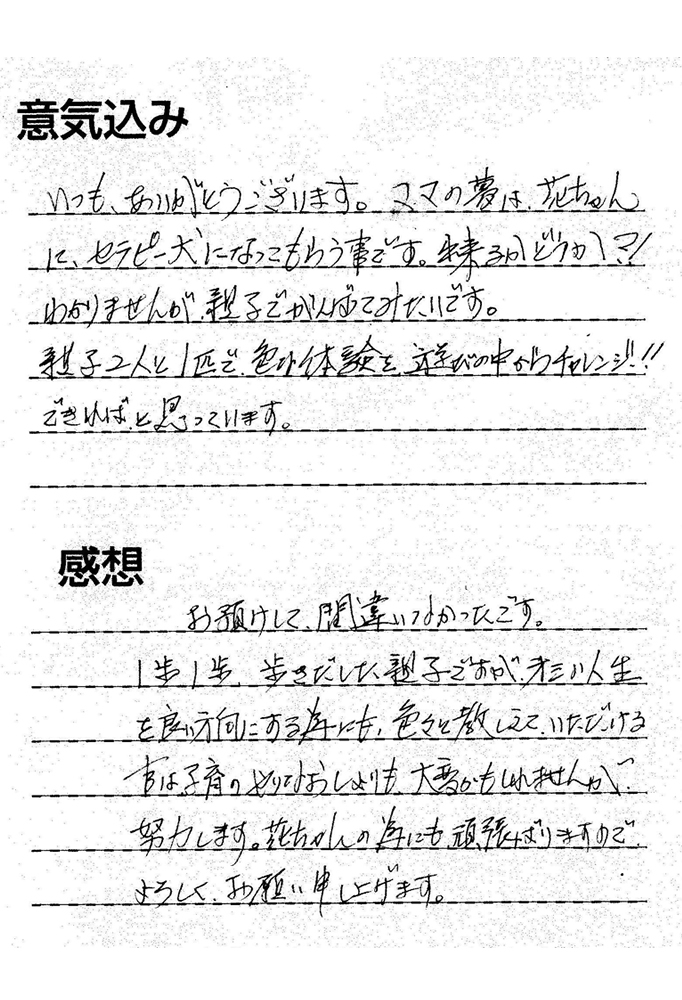 意気込み
いつも、ありがとうございます。ママの夢は、花ちゃん
に、セラピー犬になってもらう事です。出来るかどうか?!
わかりませんが、親子でがんばてみたいです。
親子2人と1匹で、色んな体験を、遊びの中からチャレンジ!!
できればと思っています。
感想
お預けして、間違いなかったです。
1歩1歩、歩きだした親子ですが、オミの人生
を良い方向にする為にも、色々と教しえて、いただける
事は子育のやりなおしよりも、大変かもしれませんが、
努力します。花ちゃんの為にも頑張ばりますので、
よろしく、お願い申し上げます。